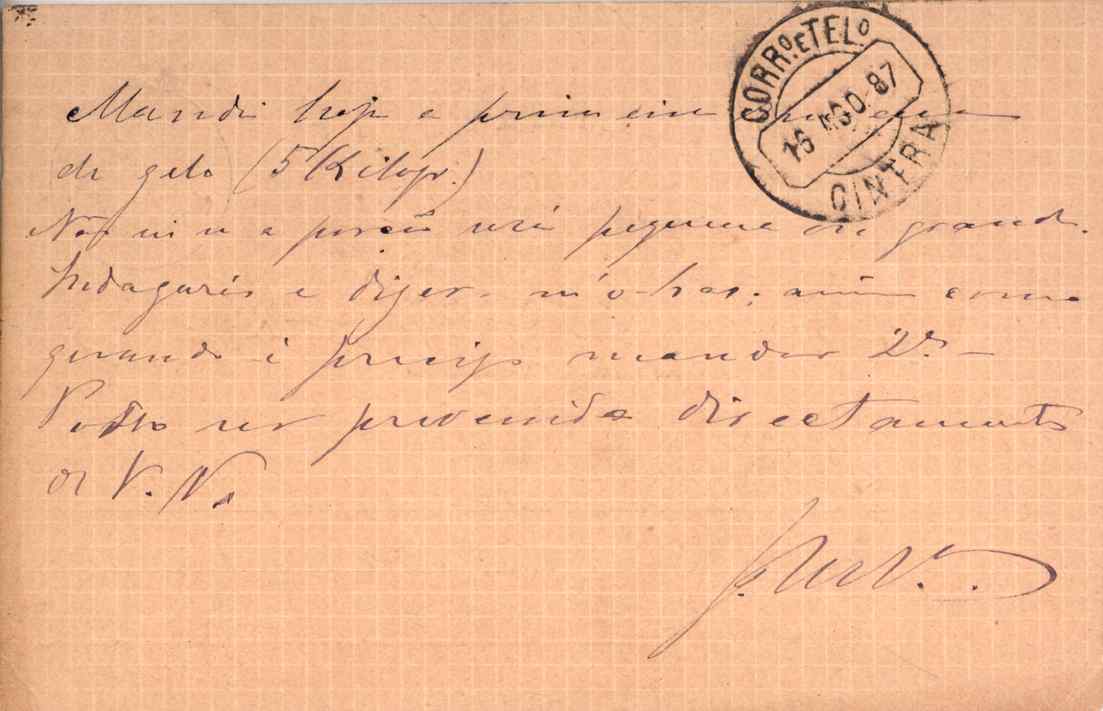 CORRº. E TELº.
16 AGO. 87
CINTRA
Mandei hoje a primeira
de gelo (5 Kilogr.)
Não sei se a porção será pequena ou grande.
Indagareis e dizer-m'o-has; assim como
quando é preciso mandar 2ª.
Posso ser prevenido directamente
de V. N.